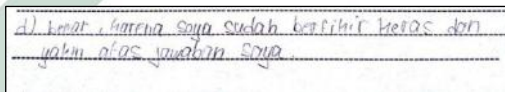 d) benar, karena saya sudah berfikir keras dan
yakin atas jawaban saya.